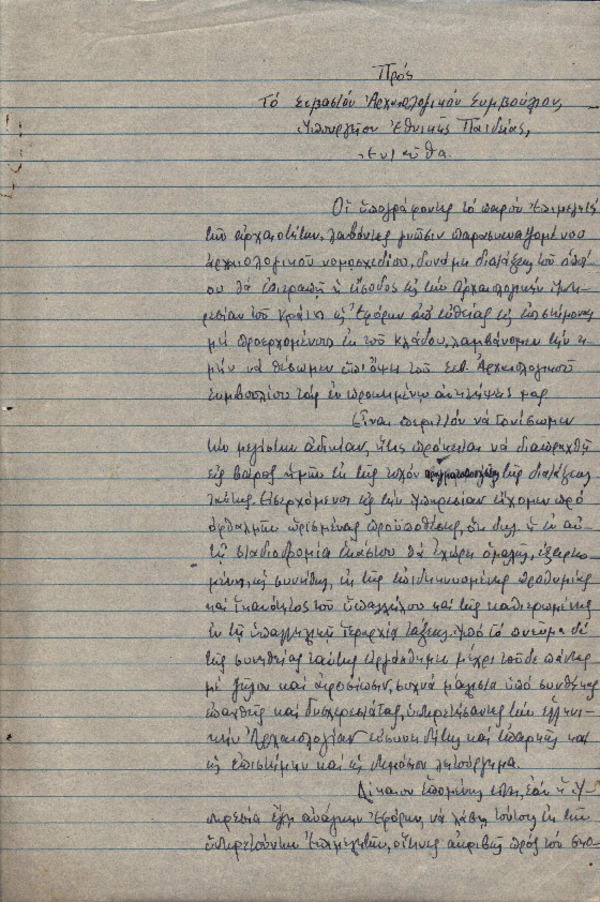 Πρὸς
Τὸ Σεβαστὸν Ἀρχαιολογικὸν Συμβούλιον,
Ὑπουργεῖον Ἐθνικῆς Παιδείας,
Ἐνταῦθα.
Οἱ ὑπογράφοντες τὸ παρὸν Ἐπιμεληταὶ
τῶν ἀρχαιοτήτων, λαβόντες γνῶσιν παρασκευαζομένου
ἀρχαιολογικοῦ νομοσχεδίου, δυνάμει διατάξεως τοῦ ὁποί-
ου θὰ ἐπιτραπῇ ἡ εἴσοδος εἰς τὴν Ἀρχαιολογικὴν Ὑπη-
ρεσίαν τοῦ Κράτους ὡς Ἐφόρων ἀπ' εὐθείας εἰς ἐπιστήμονας
μὴ προερχομένους ἐκ τοῦ κλάδου, λαμβάνομεν τὴν τι-
μὴν νὰ θέσωμεν ὑπ' ὄψει τοῦ Σεβ. Ἀρχαιολογικοῦ
Συμβουλίου τὰς ἐν προκειμένῳ ἀντιλήψεις μας
Εἶναι περιττὸν νὰ τονίσωμεν
τὴν μεγίστην ἀδικίαν, ἥτις πρόκειται νὰ διαπραχθῇ
εἰς βάρος ἡμῶν ἐκ τῆς τυχὸν τῆς διατάξεως
ταύτης. Εἰσερχόμενοι εἰς τὴν ὑπηρεσίαν εἴχομεν πρὸ
ὀφθαλμῶν ὡρισμένας προϋποθέσεις, ὅτι δηλ. ἡ ἐν αὐ-
τῇ σταδιοδρομία ἑκάστου θὰ ἐχώρει ὁμαλῶς, ἐξαρτω-
μένη, ὡς συνήθως, ἐκ τῆς ἐπιδεικνυομένης προθυμίας
καὶ ἱκανότητος τοῦ ὑπαλλήλου καὶ τῆς καθιερωμένης
ἐν τῇ ὑπαλληλικῇ ἱεραρχίᾳ τάξεως. Ὑπὸ τὸ πνεῦμα δὲ
τῆς συνηθείας ταύτης εἰργάσθημεν μέχρι τοῦδε πάντες
μὲ ζῆλον καὶ ἀφοσίωσιν, συχνὰ μάλιστα ὑπὸ συνθήκας
ἐπαχθεῖς καὶ δυσχερεστάτας, ὑπηρετήσαντες τὴν ἑλληνι-
κὴν Ἀρχαιολογίαν εὐσυνειδήτως καὶ ἐπαρκῶς καὶ
ὡς ἐπιστήμην καὶ ὡς δημόσιον λειτούργημα.
Δίκαιον ἑπομένως εἶναι, ἐὰν ἡ Ὑ-
πηρεσία ἔχῃ ἀνάγκην Ἐφόρων, νὰ λάβῃ τούτους ἐκ τῶν
ὑπηρετούντων Ἐπιμελητῶν, οἵτινες ἀκριβῶς πρὸς τὸν σκο-